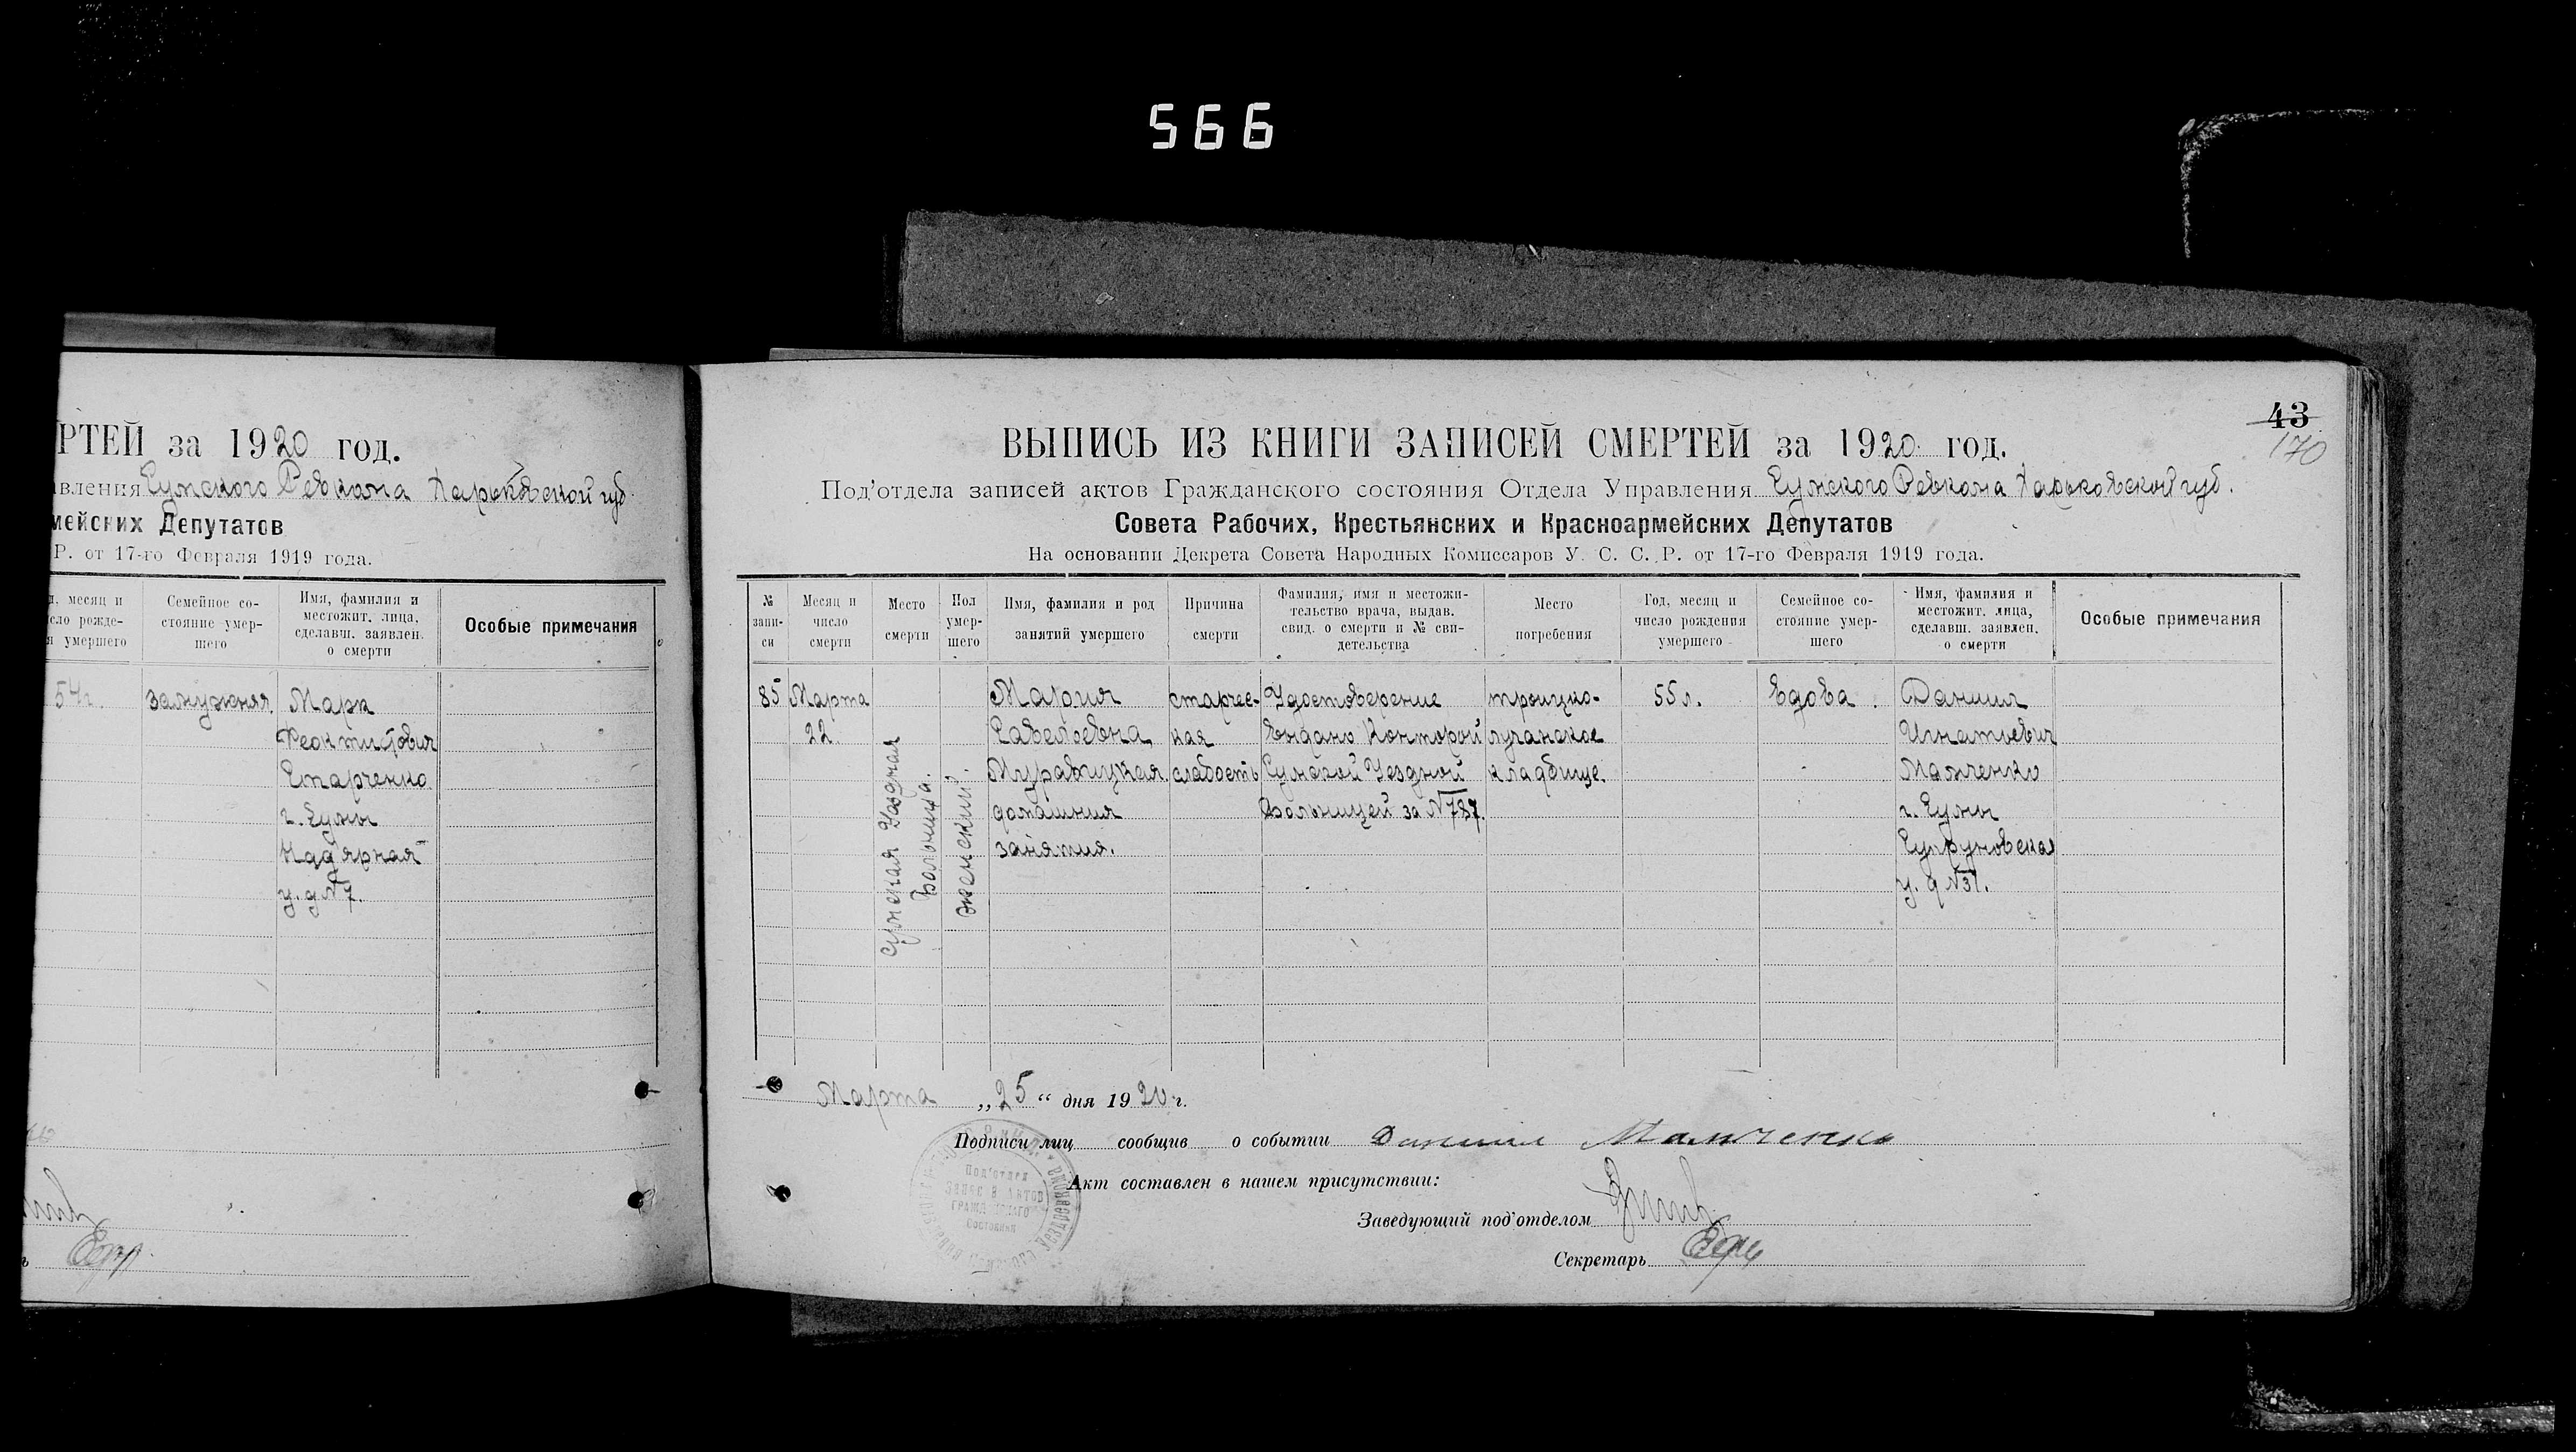 566
РТЕЙ за 1920 год.
вления Сумского Ревкома Харьковской губ.
мейских Депутатов
Р. от 17-го Февраля 1919 года.
д, месяц и
сло рожде-
я умершего
Семейное со-
стояние умер-
шего
Имя, фамилия и
местожит. лица,
сделавш. заявлен.
о смерти
Особые примечания
54 г.
замужняя
Марк
Феоктистович
Старченко
г. Сумы
Над'ярная
у. д № 7.
43
170
ВЫПИСЬ ИЗ КНИГИ ЗАПИСЕЙ СМЕРТЕЙ за 1920 год.
Под'отдела записей актов Гражданского состояния Отдела Управления Сумского Ревкома Харьковской губ.
Совета Рабочих, Крестьянских и Красноармейских Депутатов
На основании Декрета Совета Народных Комиссаров У. С. С. Р. от 17-го Февраля 1919 года.
№
запи-
си
Месяц и
число
смерти
Место
смерти
Пол
умер-
шего
Имя, фамилия и род
занятий умершего
Причина
смерти
Фамилия, имя и местожи-
тельство врача, выдав.
свид. о смерти и № сви-
детельства
Место
погребения
Год, месяц и
число рождения
умершего
Семейное со-
стояние умер-
шего
Имя, фамилия и
местожит. лица,
сделавш. заявлен.
о смерти
Особые примечания
85
Марта
22
Сумская Уездная
Больница.
женский
Мария
Савельевна
Муравицкая
домашния
занятия.
старчес-
кая
слабость
Удостоверение
выдано Конторой
Сумской Уездной
Больницей за № 787.
троицко-
луганское
кладбище.
55 л.
Вдова.
Даниил
Игнатьевич
Мамченко
г. Сумы
Супруновская
у. д № 31.
Марта „25“ дня 1920 г.
Подписи лиц сообщив о событии Даниил Мамченко
Под'отдел
Записи Актов
Гражданского
Состояния
Акт составлен в нашем присутствии:
Заведующий под'отделом
Секретарь